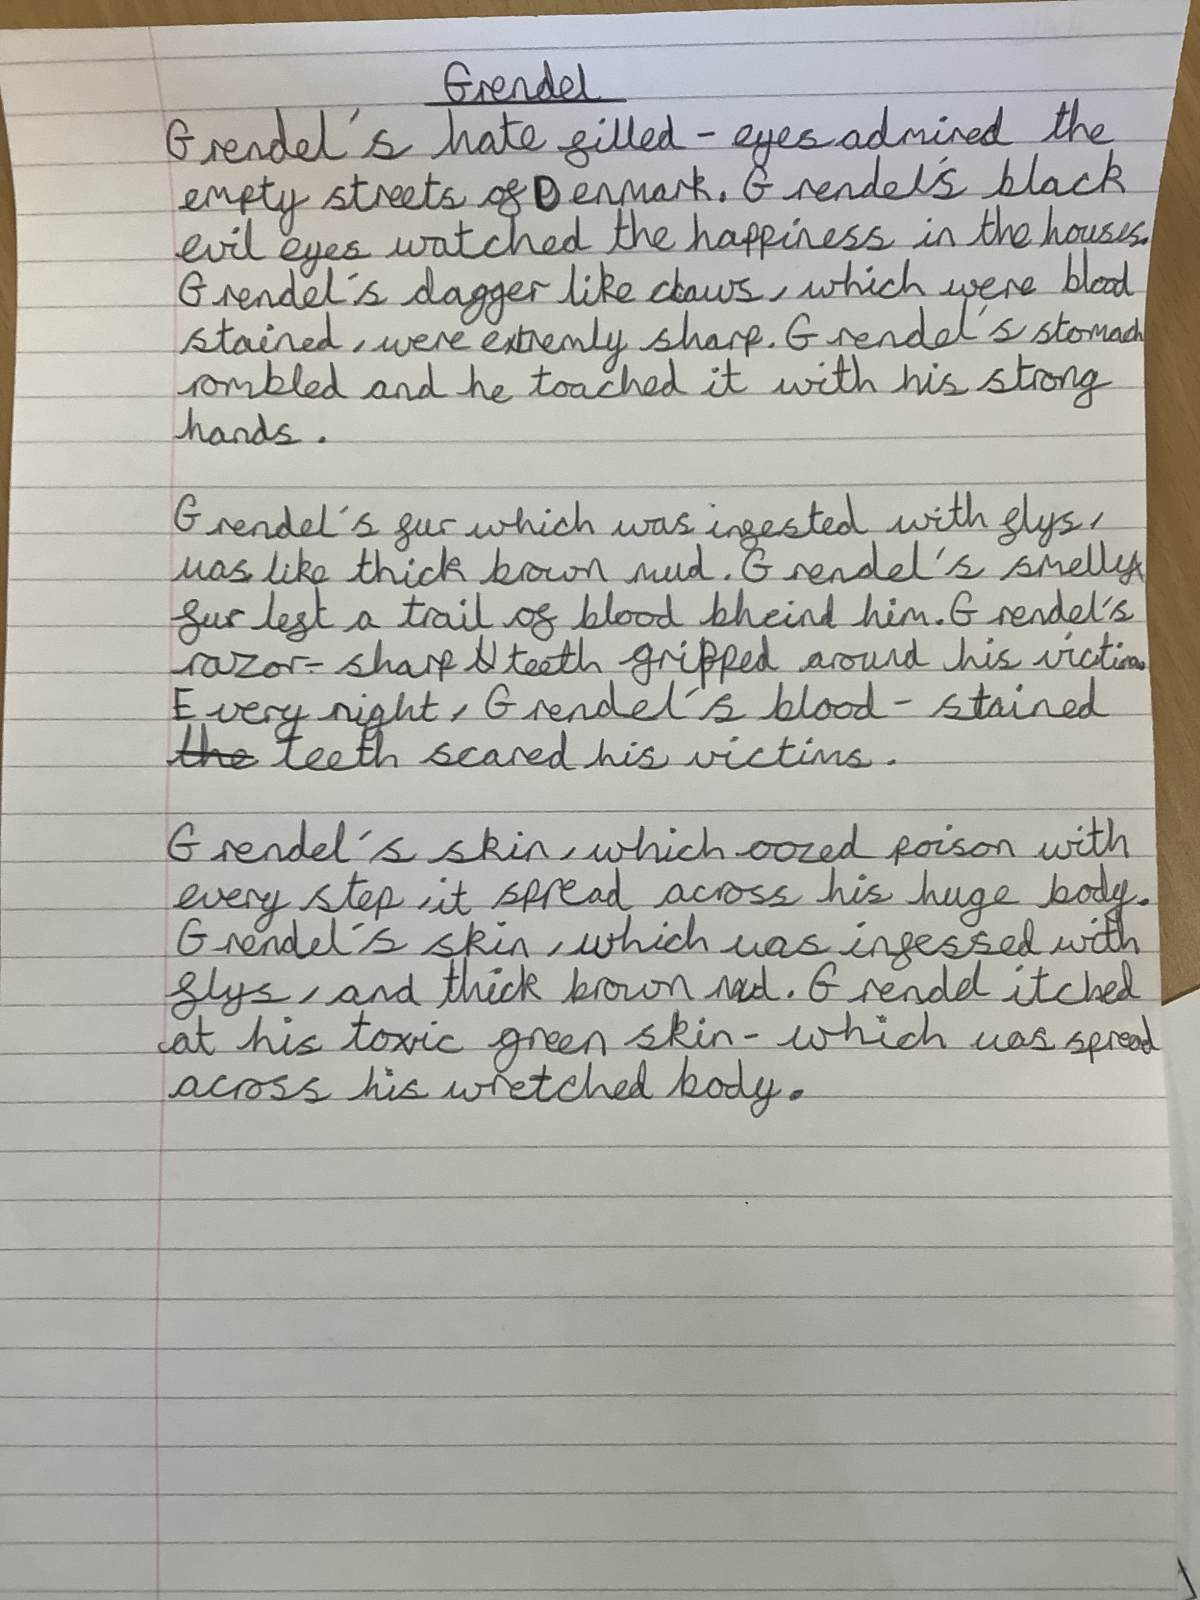 Grendel
Grendel's hate filled - eyes admired the
empty streets of Denmark. Grendel's black
evil eyes watched the happiness in the houses.
Grendel's dagger like claws, which were blood
stained, were extremly sharp. Grendel's stomach
rombled and he toached it with his strong
hands.
Grendel's fur which was infested with flys,
was like thick brown mud. Grendel's smelly
fur left a trail of blood bheind him. Grendel's
razor- sharp teeth gripped around his victims.
Every night, Grendel's blood - stained
the teeth scared his victims.
Grendel's skin, which oozed poison with
every step, it spread across his huge body.
Grendel's skin, which was infessed with
flys, and thick brown mud. Grendel itched
at his toxic green skin- which was spread
across his wretched body.